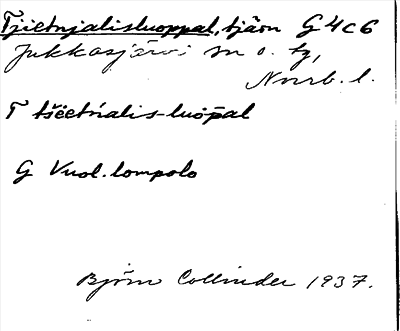 Tjietnjalisluoppal, tjärn G4c6
Jukkasjärvi sn o. tg,
Norrb. l.
T tšietńalis-luōpal
G Vuol. lompolo
Björn Collinder 1937.